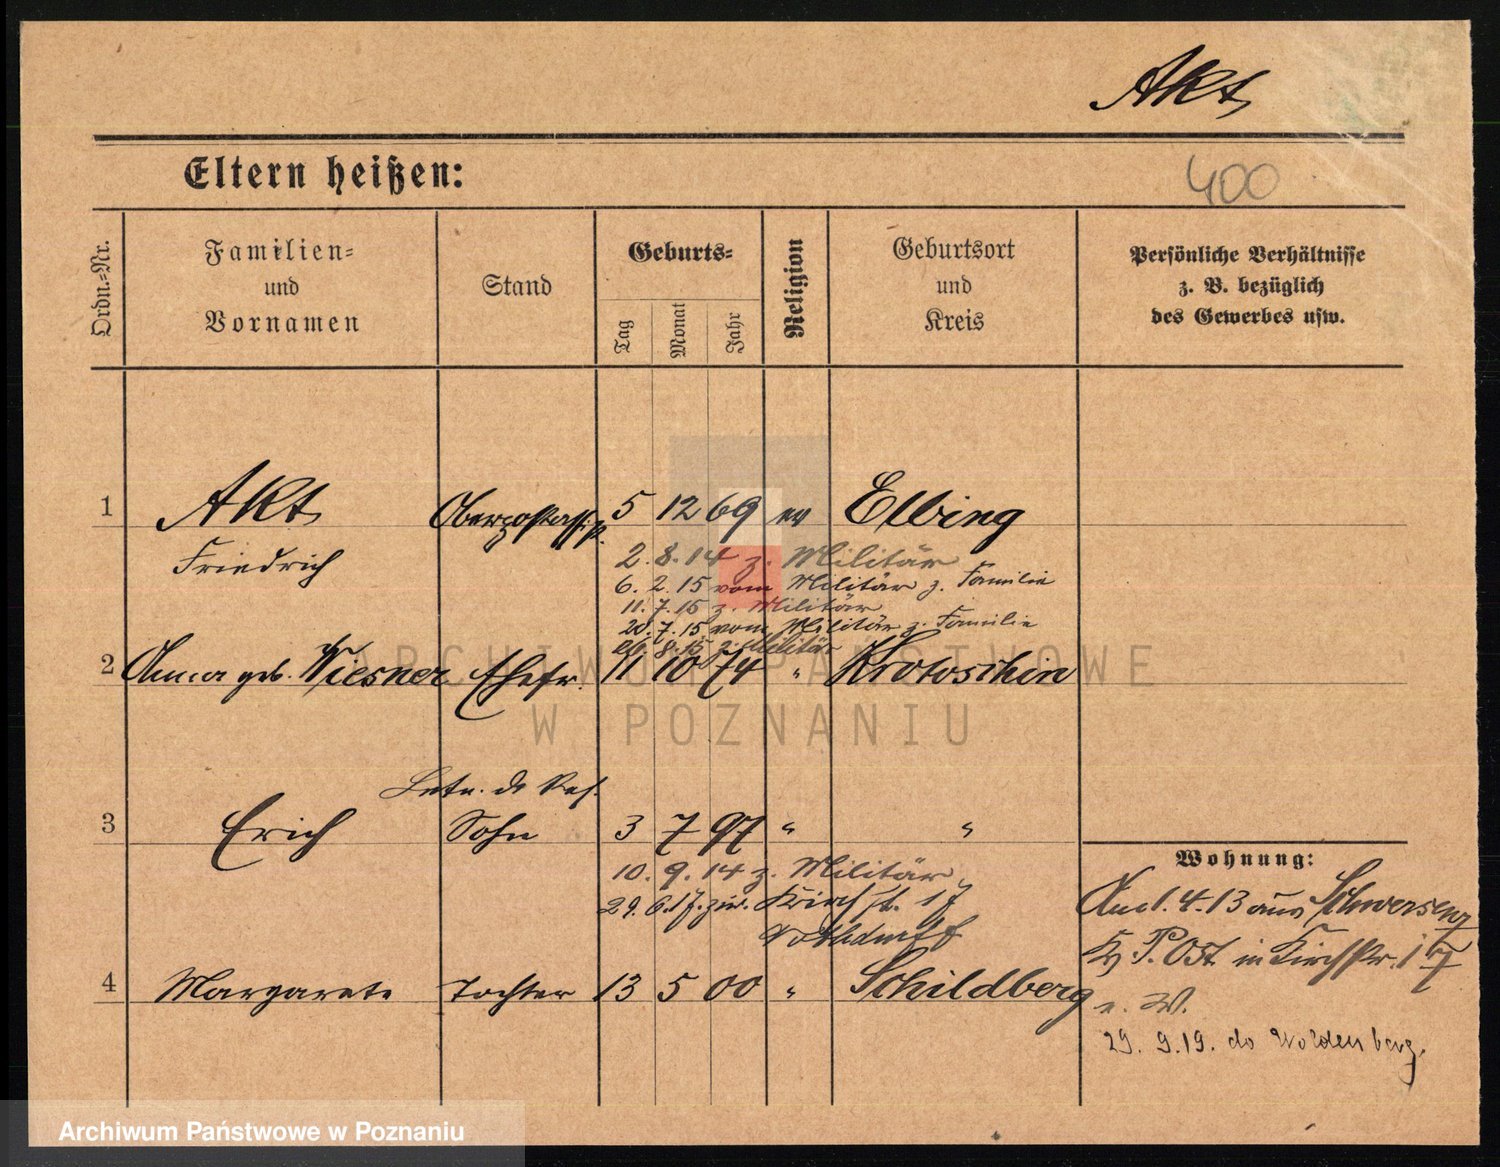 Akt
Eltern heißen:
400
Ordn.-Nr.
Familien=
und
Vornamen
Stand
Geburts=
Tag
Monat
Jahr
Religion
Geburtsort
und
Kreis
Persönliche Verhältnisse
z. B. bezüglich
des Gewerbes usw.
1 Akt Oberpostassist. 5 12 69 ev Elbing
Friedrich
2. 8. 14 z. Militär
6. 2. 15 vom Militär z. Familie
11. 7. 15 z. Militär
20. 7. 15 vom Militär z. Familie
26. 8. 15 z. Militär
2 Anna geb. Wiesner Ehefr. 11 10 74 " Krotoschin
ARCHIWUM PAŃSTWOWE
W POZNANIU
Letn. d. Res.
3 Erich Sohn 3 7 97 " "
10. 9. 14 z. Militär
29. 6. 17. zur. Kirchst. 17
Wohnung:
1. 4. 13 aus Schwersenz
P. Ost in Kirchstr. 17
4 Margarete Tochter 13 5 00 " Schildberg
e. W.
29. 9. 19. do Woldenberg.
Archiwum Państwowe w Poznaniu